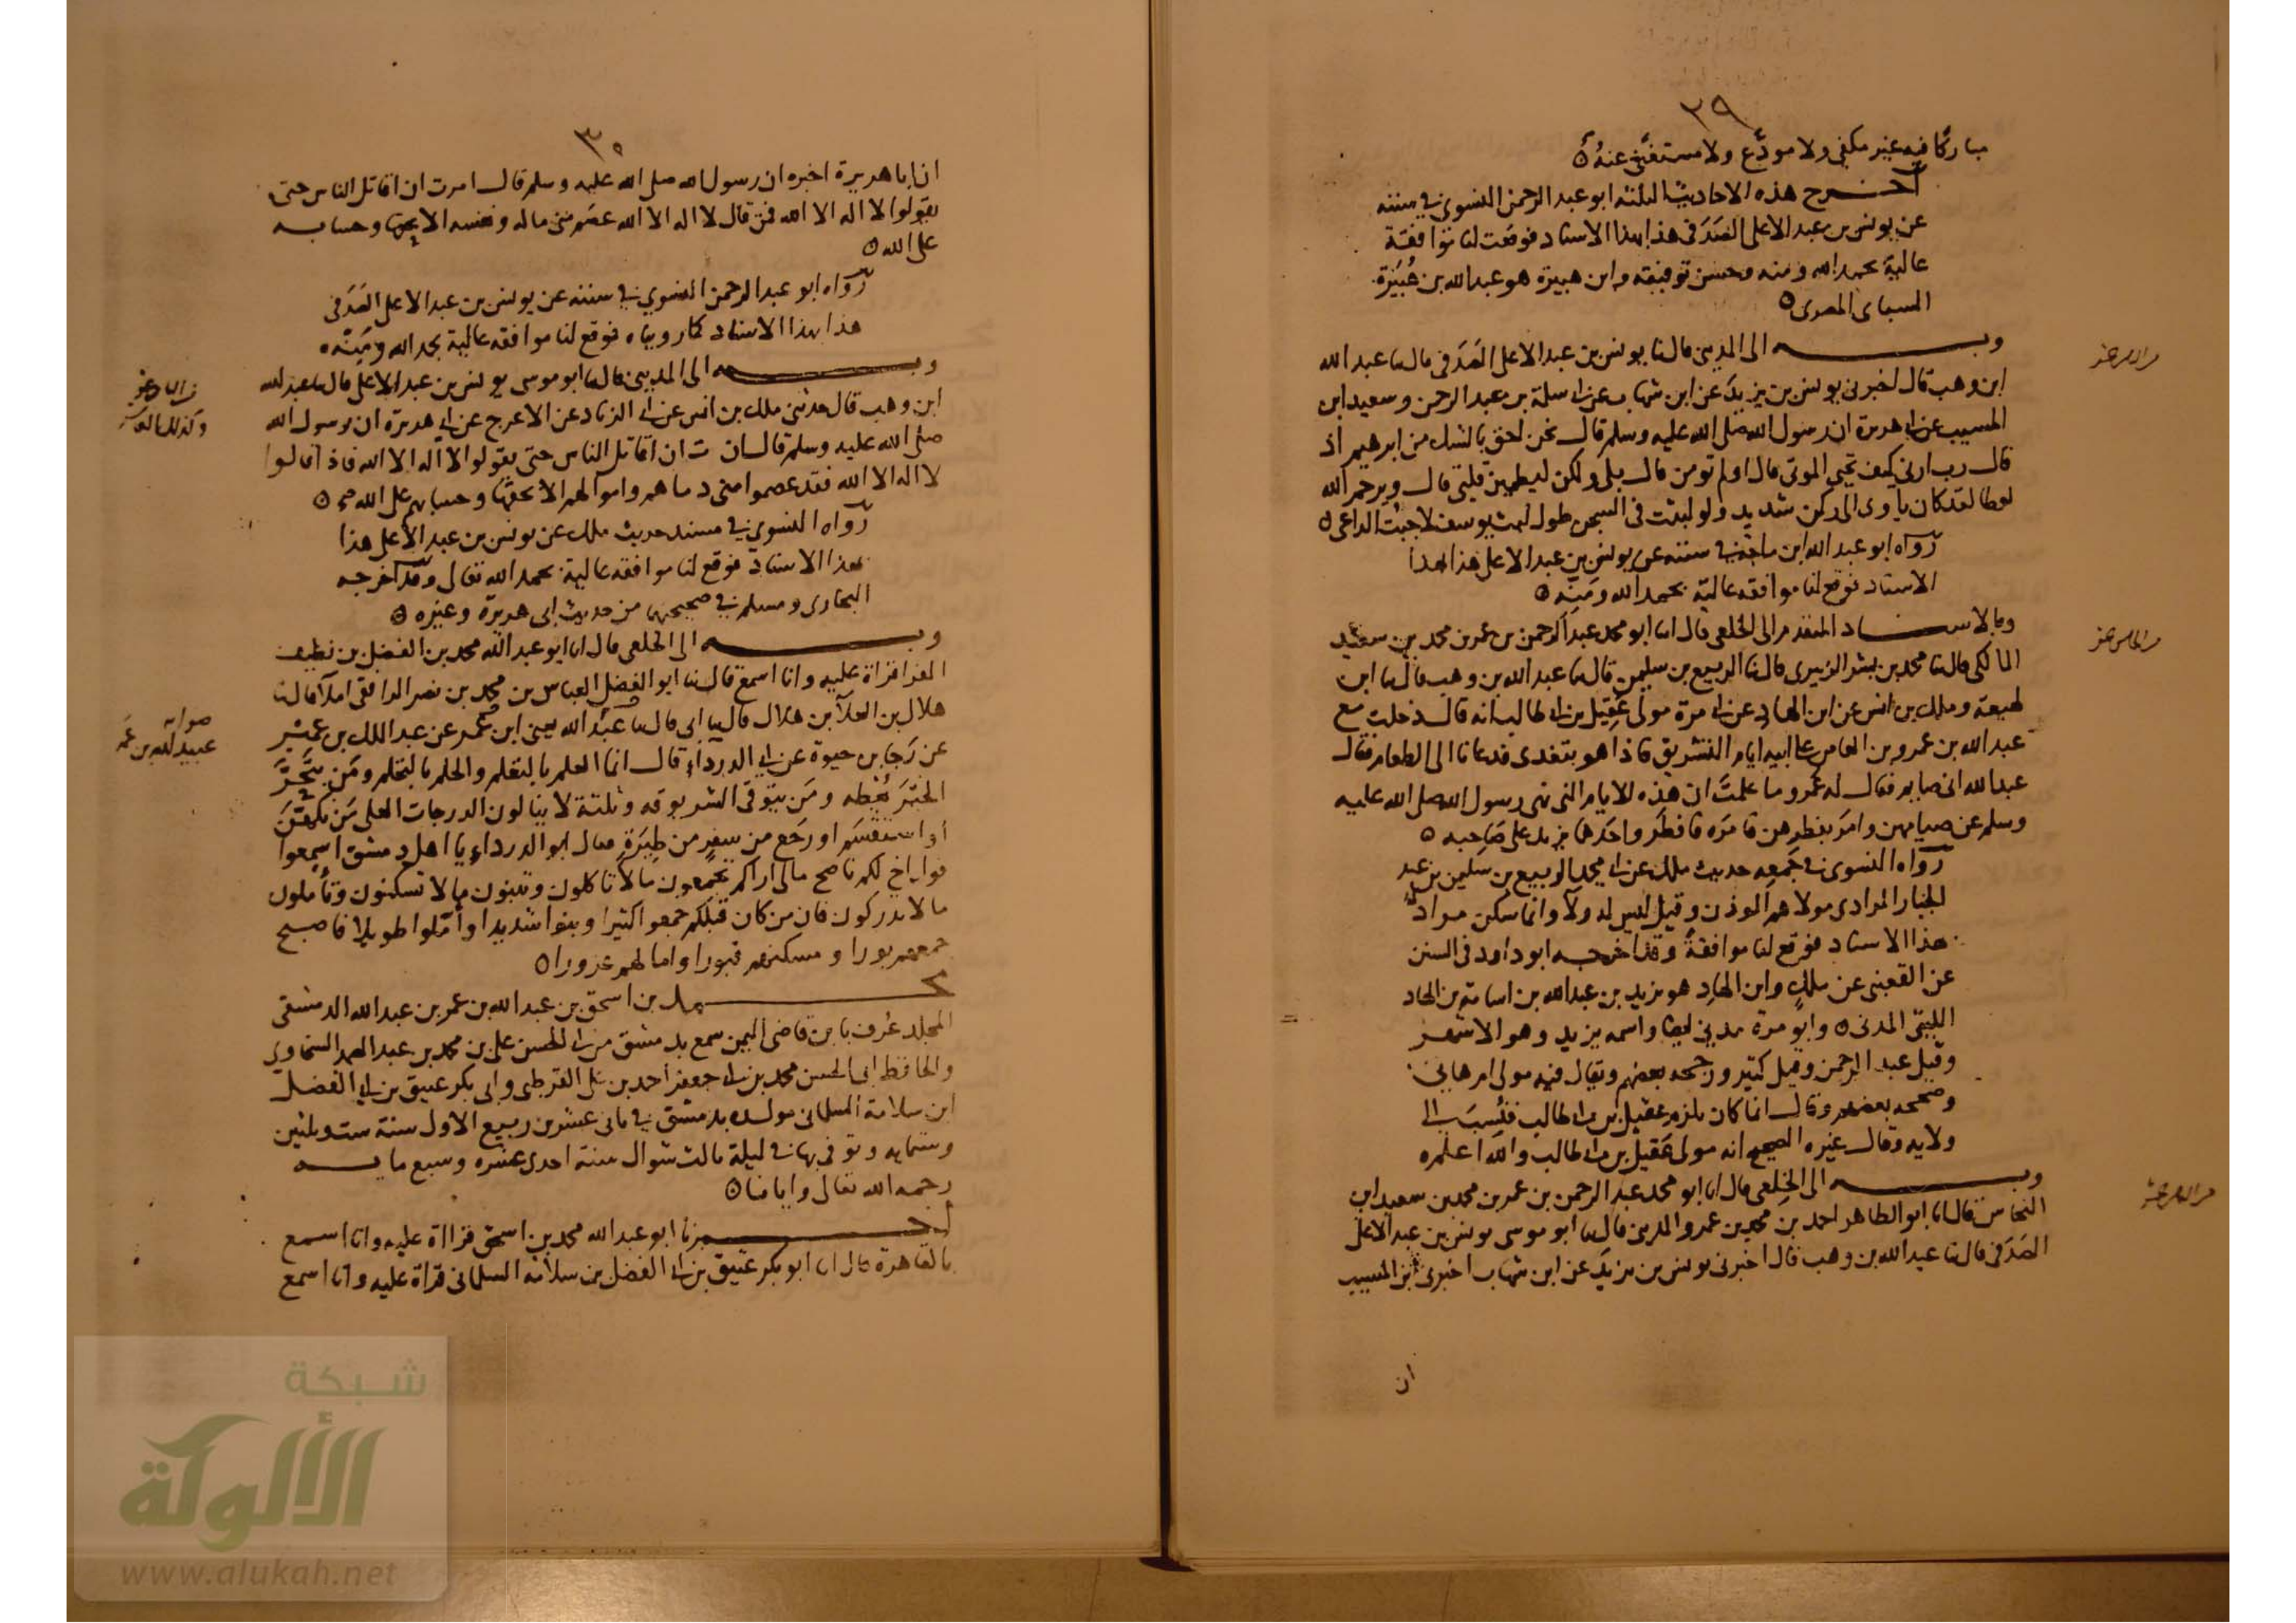 ٢٩
مباركا فيه غير مكفي ولا مودَّع ولا مستغنًى عنه ٥
أخرج هذه الاحاديث الثلثة ابو عبد الرحمن النسوي في سننه
عن يونس بن عبد الاعلى الصَدَفي هذا بهذا الاسناد فوقعت لنا موافقة
عالية بحمد الله ومنه وحسن توفيقه وابن هبيرة هو عبد الله بن هُبَيْرة
السباى المصرى ٥
وبه الى المديني قال نا يونس بن عبد الاعلى الصَدَفي قال نا عبد الله
ابن وهب قال اخبرني يونس بن يزيد عن ابن شهاب عن ابى سلمة بن عبد الرحمن وسعيد ابن
المسيب عن ابى هريرة ان رسول الله صلى الله عليه وسلم قال نحن احق بالشك من ابرهيم اذ
قال رب ارني كيف تحيي الموتى قال اولم تومن قال بلى ولكن ليطمين قلبي قال ويرحم الله
لوطا لقد كان يأوى الى ركن شديد ولو لبثت في السجن طول لبث يوسف لاجبت الداعى ٥
رواه ابو عبد الله ابن ماجة في سننه عن يونس بن عبد الاعلى هذا بهذا
الاسناد فوقع لنا موافقة عالية بحمد الله ومَنِّه ٥
وبالاسناد المتقدم الى الخلعي قال انا ابو محمد عبد الرحمن بن عمر بن محمد بن سعيد
المالكي قال نا محمد بن بشر الزبيرى قال نا الربيع بن سليمن قال نا عبد الله بن وهب قال نا ابن
لهيعة وملك بن انس عن ابن الهاد عن ابى مرة مولى عَقِيل بن ابى طالب انه قال دخلت مع
عبد الله بن عمرو بن العاص على ابيه ايام التشريق فاذا هو يتغدى فدعانا الى الطعام فقال
عبد الله انى صايم فقال له عمرو ما علمت ان هذه الايام التى نهى رسول الله صلى الله عليه
وسلم عن صيامهن وامر بفطرهن فامره فافطر واحدهما يزيد على صاحبه ٥
رواه النسوى في جمعه حديث ملك عن ابى محمد الربيع بن سليمن بن عبد
الجبار المرادى مولاهم الموذن وقيل ليس له ولآ وانما سكن مراد
هذا الاسناد فوقع لنا موافقةً وقد اخرجه ابو داود فى السنن
عن القعنبى عن ملك وابن الهاد هو يزيد بن عبد الله بن اسامة بن الهاد
الليثى المدنى ٥ وابو مرة مدني ايضا واسمه يزيد وهو الاشهر
وقيل عبد الرحمن وقيل كثير ورجحه بعضهم ويقال فيه مولى ام هاني
وصححه بعضهم وقال انما كان يلزم عقيل بن ابى طالب فنُسِبَ الى
ولايه وقال غيره الصحيح انه مولى عَقيل بن ابى طالب والله اعلم ٥
وبه الى الخلعي قال انا ابو محمد عبد الرحمن بن عمر بن محمد بن سعيد ابن
النحاس قال انا ابو الطاهر احمد بن محمد بن عمرو المدني قال نا ابو موسى يونس بن عبد الاعلى
الصَدَفي قال نا عبد الله بن وهب قال اخبرنى يونس بن يزيد عن ابن شهاب اخبرنى ابن المسيب
ان
٣٠
ان ابا هريرة اخبره ان رسول الله صلى الله عليه وسلم قال امرت ان اقاتل الناس حتى
يقولوا لا اله الا الله فمن قال لا اله الا الله عصم منى ماله ونفسه الا بحقها وحسابه
على الله ٥
رواه ابو عبد الرحمن النسوي في سننه عن يونس بن عبد الاعلى الصَدَفى
هذا بهذا الاسناد كما رويناه فوقع لنا موافقة عالية بحمد الله ومَنِّه ٥
وبه الى المديني قال نا ابو موسى يونس بن عبد الاعلى قال نا عبد الله
ابن وهب قال حدثنى ملك بن انس عن ابى الزناد عن الاعرج عن ابى هريرة ان رسول الله
صلى الله عليه وسلم قال ان اقاتل الناس حتى يقولوا لا اله الا الله فاذا قالوا
لا اله الا الله فقد عصموا منى دماهم واموالهم الا بحقها وحسابهم على الله ٥
رواه النسوي في مسند حديث ملك عن يونس بن عبد الاعلى هذا
بهذا الاسناد فوقع لنا موافقة عالية بحمد الله تعالى وقد اخرجه
البخارى ومسلم في صحيحيهما من حديث ابى هريرة وغيره ٥
وبه الى الخلعي قال انا ابو عبد الله محمد بن الفضل بن نظيف
الفرا قراة عليه وانا اسمع قال نا ابو الفضل العباس بن محمد بن نصر الرافقى املآ قال نا
هلال بن العلآ بن هلال قال نا ابى قال نا عبد الله يعنى ابن عمر عن عبد الملك بن عمير
عن رجا بن حيوة عن ابى الدرداء قال انما العلم بالتعلم والحلم بالتحلم ومن يتحرَّ
الخيرَ يُعْطه ومن يتوقى الشر يوقه وثلثة لا ينالون الدرجات العلى من تكهن
أو استقسم او رجع من سفرٍ من طِيَرَةٍ وقال ابو الدرداء يا اهل دمشق اسمعوا
قول اخ لكم ناصح مالى اراكم تجمعون ما لا تاكلون وتبنون ما لا تسكنون وتأملون
ما لا تدركون فان من كان قبلكم جمعوا كثيرا وبنوا شديدا وأمّلوا طويلا فاصبح
جمعهم بورا ومسكنهم قبورا واملهم غرورا ٥
محمد بن اسحق بن عبد الله بن عمر بن عبد الله الدمشقى
المجلد عُرف بابن قاضى اليمن سمع بدمشق من ابى الحسن على بن محمد بن عبد الصمد السخاوي
والحافظ ابى الحسن محمد بن ابى جعفر احمد بن على القرطبى وابى بكر عتيق بن ابى الفضل
ابن سلامة السلمانى مولده بدمشق في ثانى عشر من ربيع الاول سنة ست وثلثين
وستمايه وتوفى بها في ليلة ثالث شوال سنة احدى عشره وسبع مايه
رحمه الله تعالى وايانا ٥
أخبرنا ابو عبد الله محمد بن اسحق قراة عليه وانا اسمع
بالقاهرة قال انا ابو بكر عتيق بن ابى الفضل بن سلامة السلمانى قراة عليه وانا اسمع
صوابه
عبيد الله بن عمر
شبكة
الألوكة
www.alukah.net